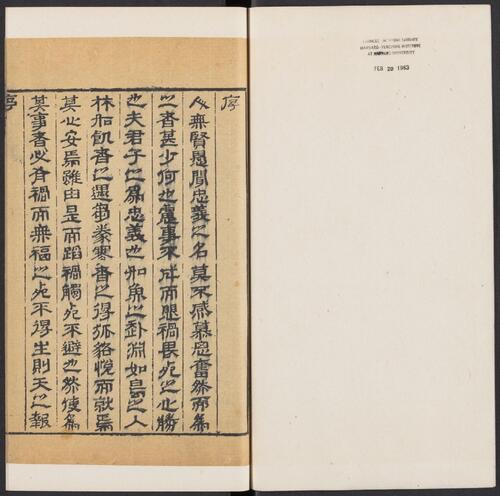 序
人無賢愚聞忠義之名莫不感慕思奮然而為
之者甚少何也慮事不成而退禍畏死之心勝
也夫君子之為忠義也如魚之赴淵如鳥之入
林如飢者之遇芻豢寒者之得狐貉悅而就焉
莫之安焉雖由是而蹈禍觸死不避也然使為
莫事者必有禍而無福之死不得生則天之報
序
CHINESE-JAPANESE LIBRARY
HARVARD-YENCHING INSTITUTE
AT HARVARD UNIVERSITY
FEB 20 1963